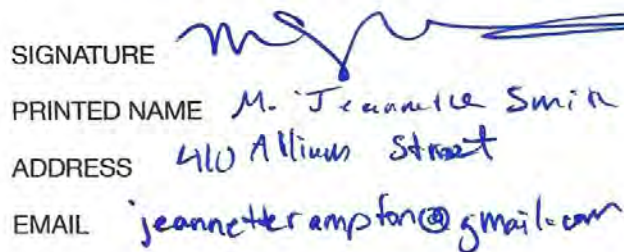 SIGNATURE
PRINTED NAME M. Jeannette Smith
ADDRESS 410 Allium Street
EMAIL jeannetterampton@gmail.com